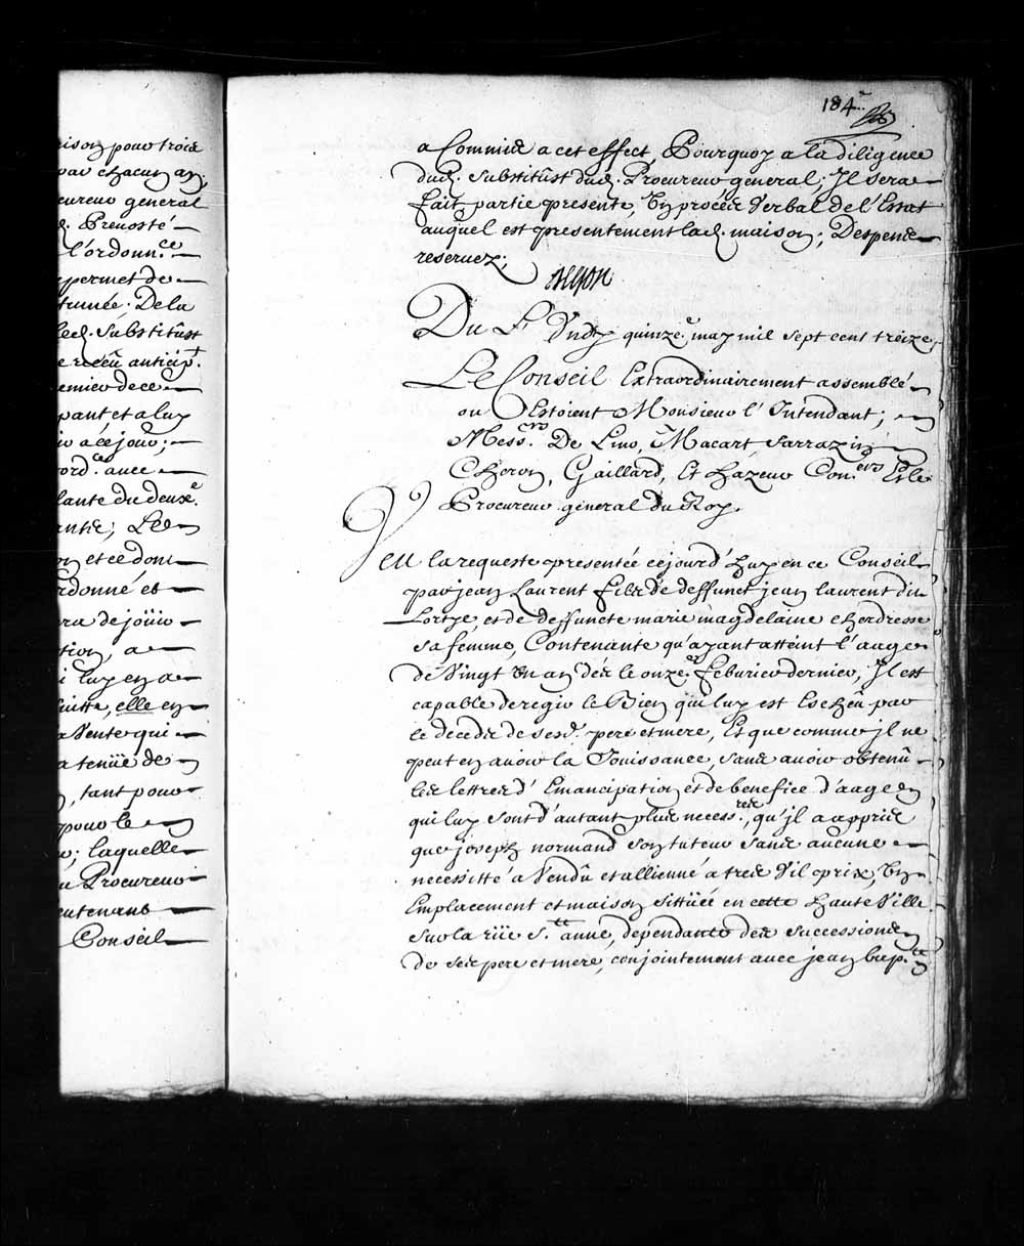 ison pour trois
par chacun an;
cureur general
d. Preuosté
l'ordonn.ce
permet de
trumée; De la
led. Substitut
e receu anticip.t
emier de ce
pant, et a luy
a ce jour;
ord.ce auec
lante du deux.e
Les
et ce dont
rdonné et
ra de joüir
tion, a
i luy en a
uitte, elle en
Vente qui
a tenüe de
, tant pour
pour le
; laquelle
u Procureur
eutenant
Conseil
184.e
a Commis a cet effect, Pourquoy a la diligence
dud. Substitut dud. Procureur general; Jl sera
fait partie presente, Un procés Verbal de l'Estat
auquel est presentement lad. maison; Despens
reseruez;
Begon
Du L. Vndy quinze.e may mil sept cent treize,
Le Conseil Extraordinairement assemblé
ou Estoient Monsieur l'Intendant;
Mess.rs De Lino, Macart, Sarrazin
Cheron, Gaillard, Et hazeur Con.ers Et le
Procureur general du Roy.
Veu la requeste presentée cejourd'huy en ce Conseil
par jean Laurent fils de deffunct jean laurent dit
Lortye, et de deffuncte marie magdelaine cherdresse
sa femme, Contenante qu'ayant atteint l'aage
de Vingt un an dés le onze.e feburier dernier, Jl est
capable de regir le Bien qui luy est Escheu par
le decedz de sesd. pere et mere, Et que comme jl ne
peut en auoir la Jouissance, sans auoir obtenû
les lettres d'Emancipation et de benefice d'aage
qui luy sont d'autant plus necess.res, qu'jl a appris
que joseph normand son tuteur sans aucune
necessitté a Vendû et allienné a tres Vil prix, Un
Emplacement et maison sittüée en cette haute Ville
sur la rüe S.tte anne, dependante des successions
de ses pere et mere, conjointement auec jean bap.tte